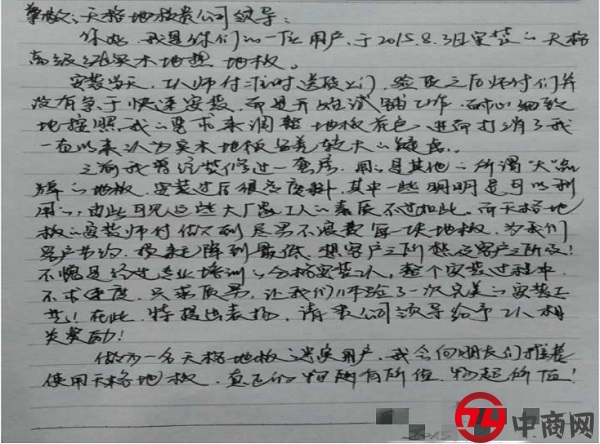 尊敬的天格地板贵公司领导：
你好，我是你们的一位用户，于2015.8.3日安装的天格
高级实木地热地板。
安装当天，工人师付准时送货上门，验收之后师付们并
没有急于快速安装，而是开始试铺工作，耐心细致
地按照我的需求来调整地板花色，进而打消了我
一直以来认为实木地板色差较大的疑虑。
之前我曾经装修过一套房，用的是其他的所谓"大"品
牌的地板，安装过后很多废料，其中一些明明是可以利
用的，由此可见这些大厂家工人的素质不过如此。而天格地
板的安装师付做到尽量不浪费每一块地板，为我们
客户节约，损耗降到最低，想客户之所想，急客户之所及！
不愧是经过专业培训的合格安装工人，整个安装过程中
不求速度，只求质量，让我们体验了一次完美的安装工
艺！在此，特提出表扬，请贵公司领导给予工人相
关奖励！
做为一名天格地板的忠实用户，我会向朋友们推荐
使用天格地板，真正的物有所值，物超所值！
中商网